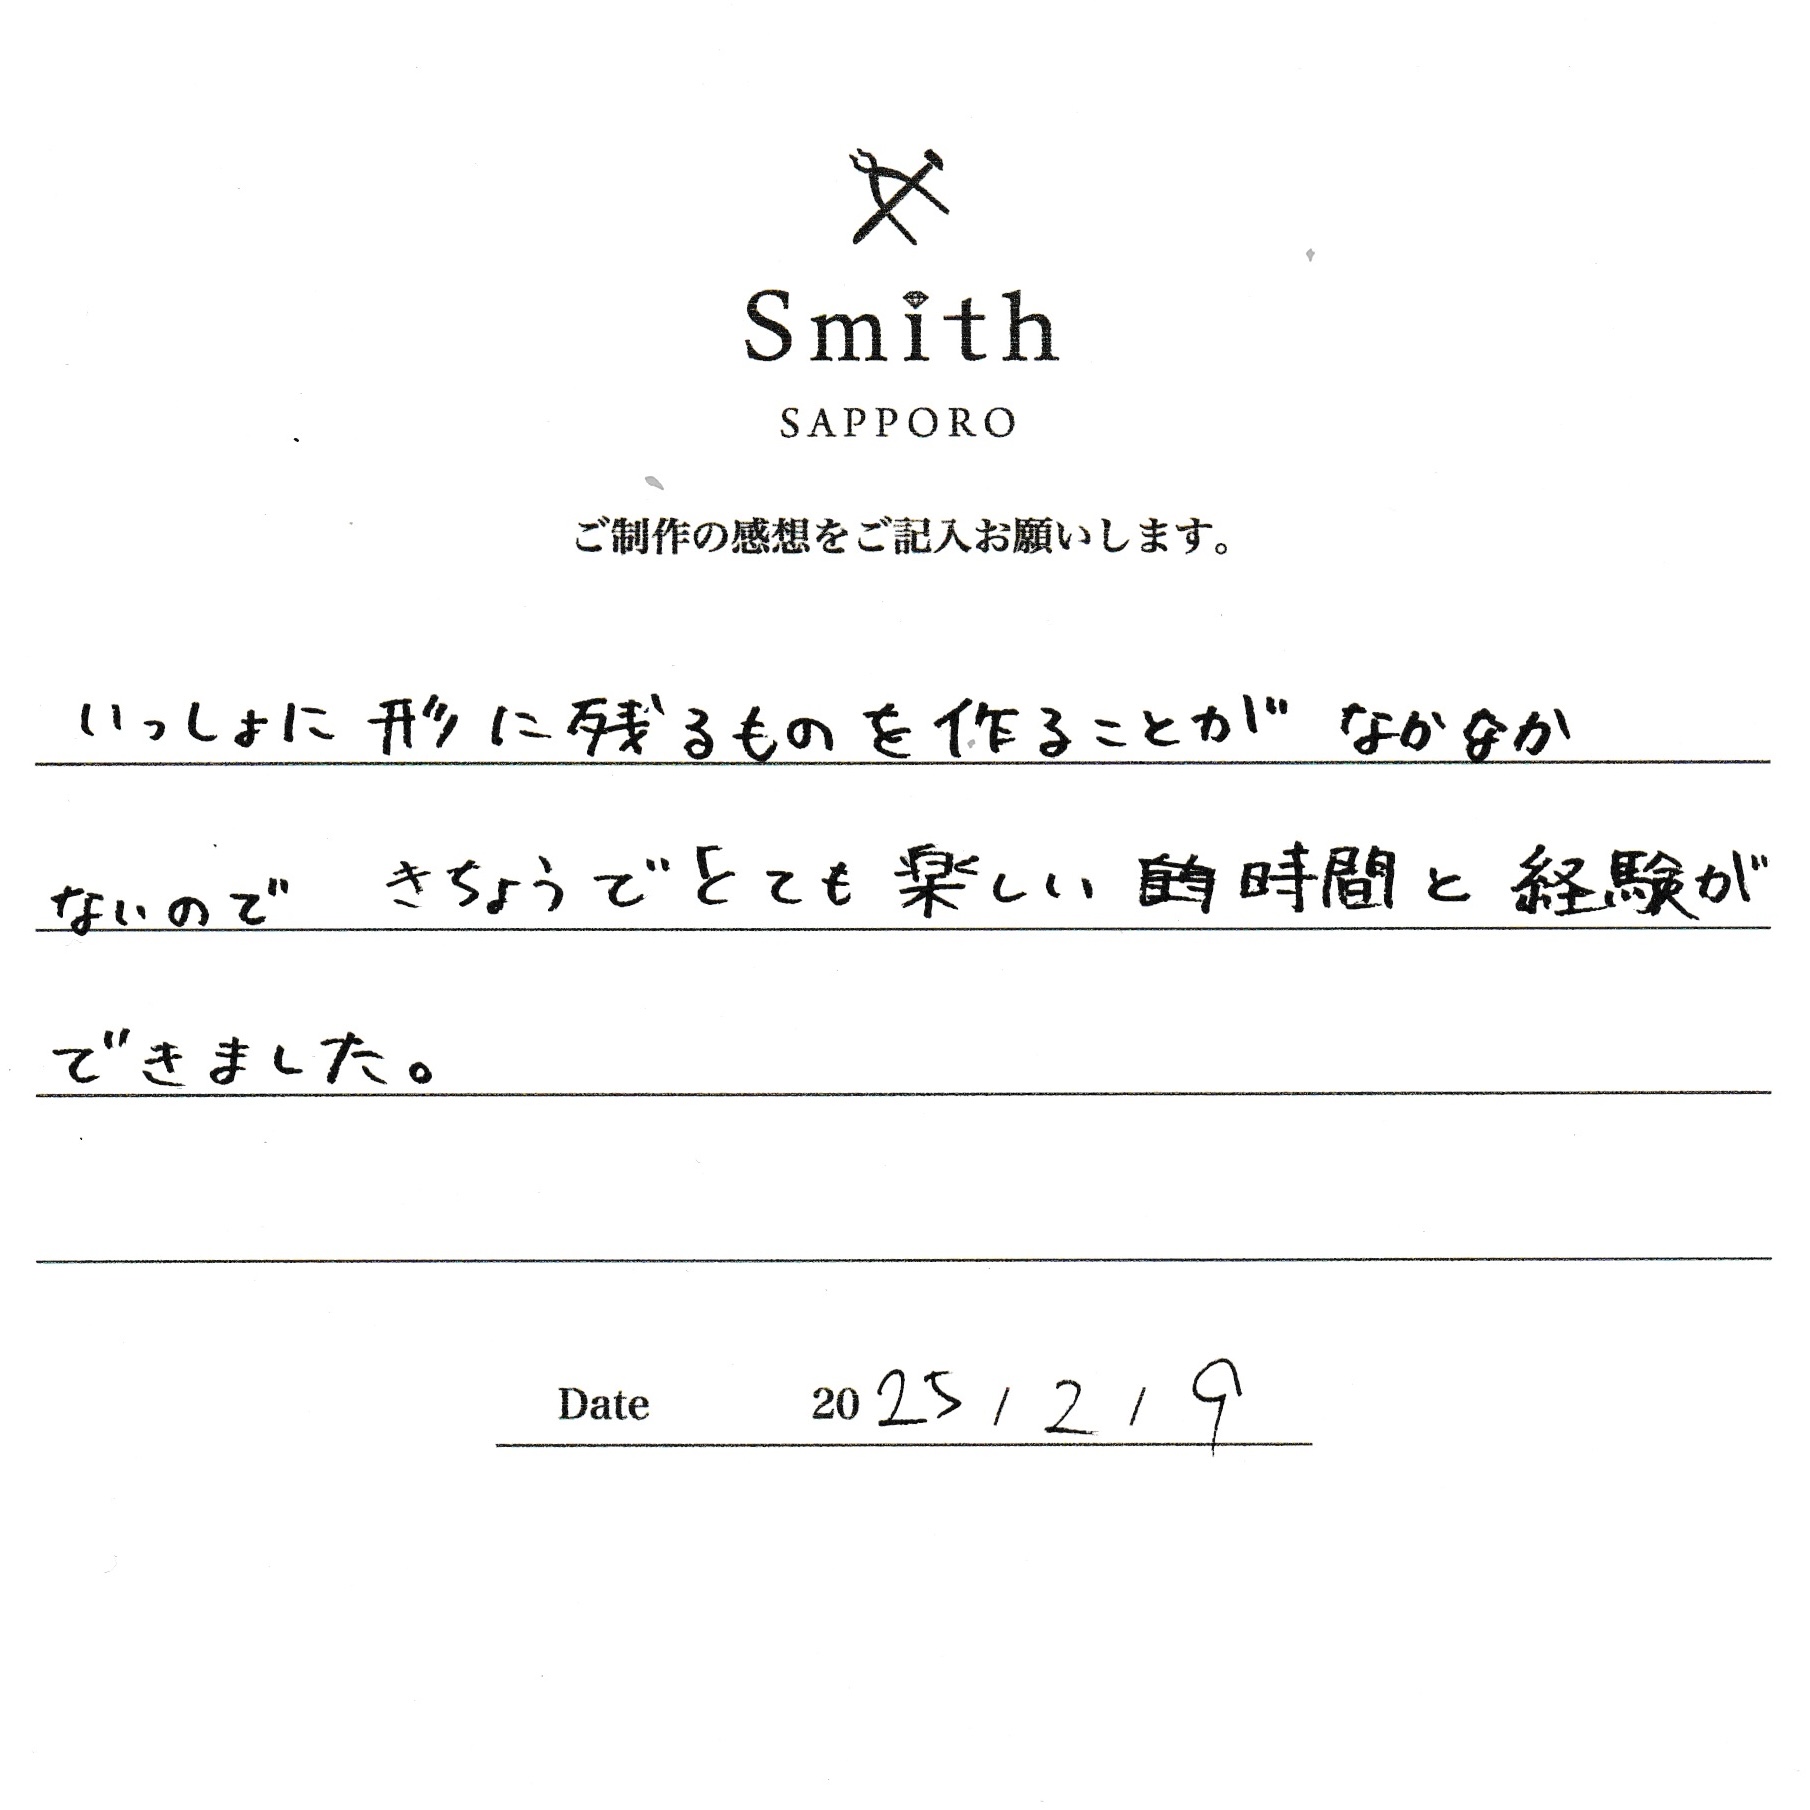 Smith
SAPPORO
ご制作の感想をご記入お願いします。
いっしょに 形に残るものを作ることが なかなか
ないので きちょうでとても楽しい 時間と経験が
できました。
Date 2025/2/9